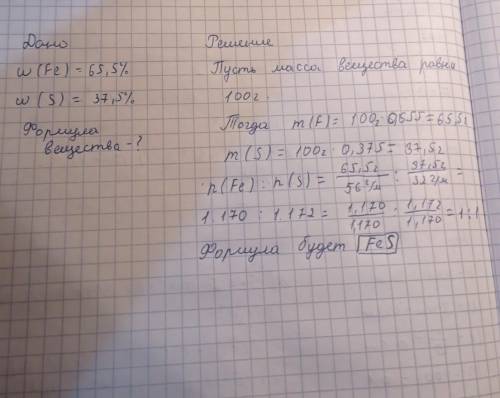 Дано
w(Fe) = 65,5%
w(S) = 37,5%
Формула
вещества - ?
Решение
Пусть масса вещества равна
100г.
Тогда m(F) = 100г 0,655 = 65,5г
m(S) = 100г · 0,375 = 37,5г
n(Fe) : n(S) = 65,5г/56г/м : 37,5г/32г/м =
1.170 : 1.172 = 1,170/1,170 : 1,172/1,170 = 1:1
Формула будет FeS